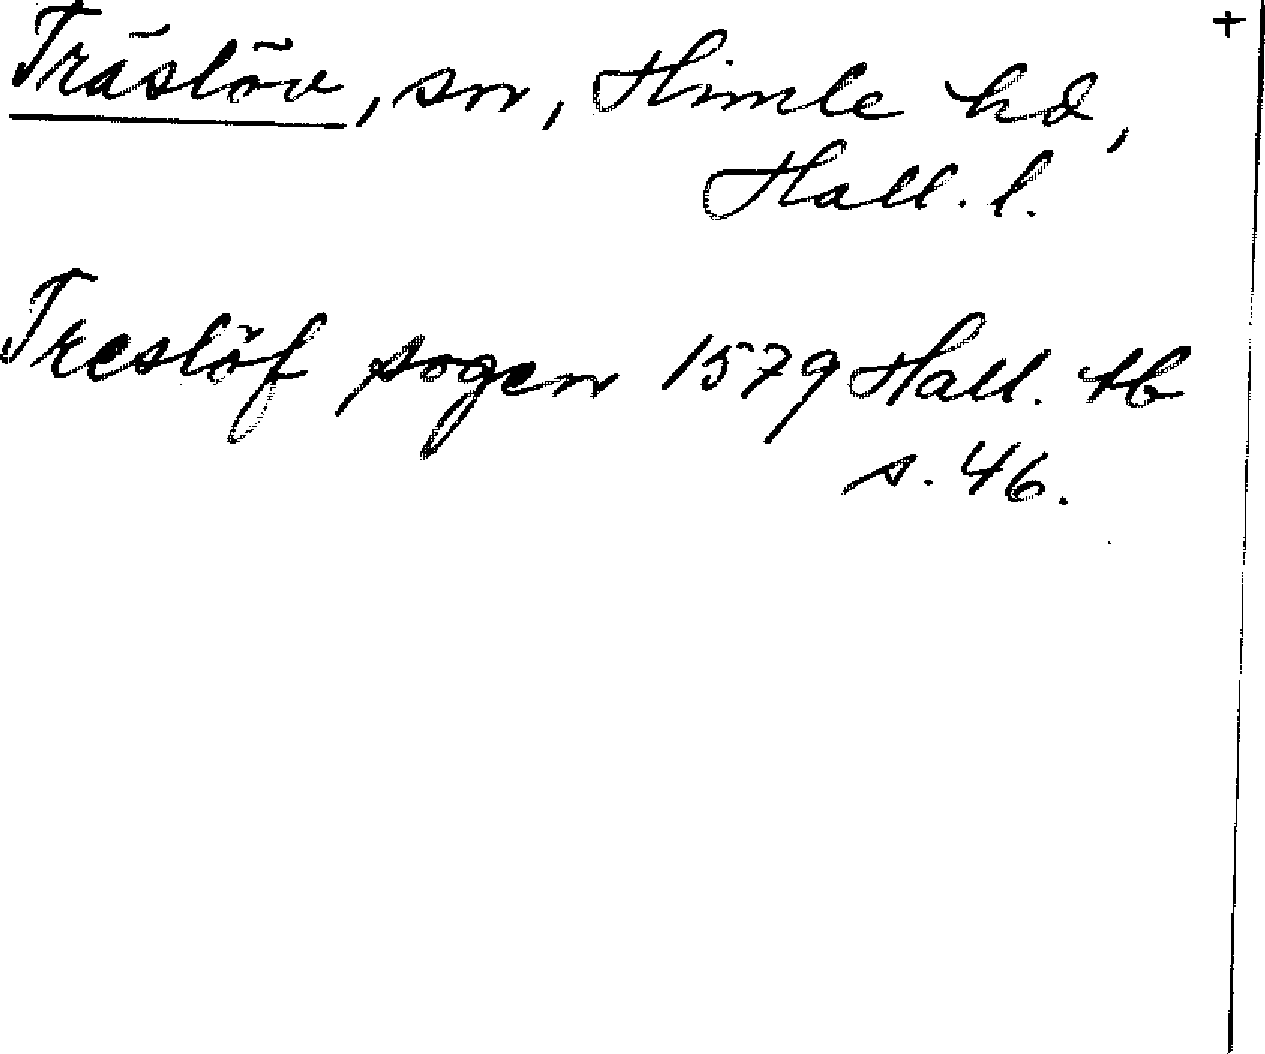 +
Träslöv, sn, Himle hd,
Hall. l.
Treslöf sogen 1579 Hall. tb
s. 46.